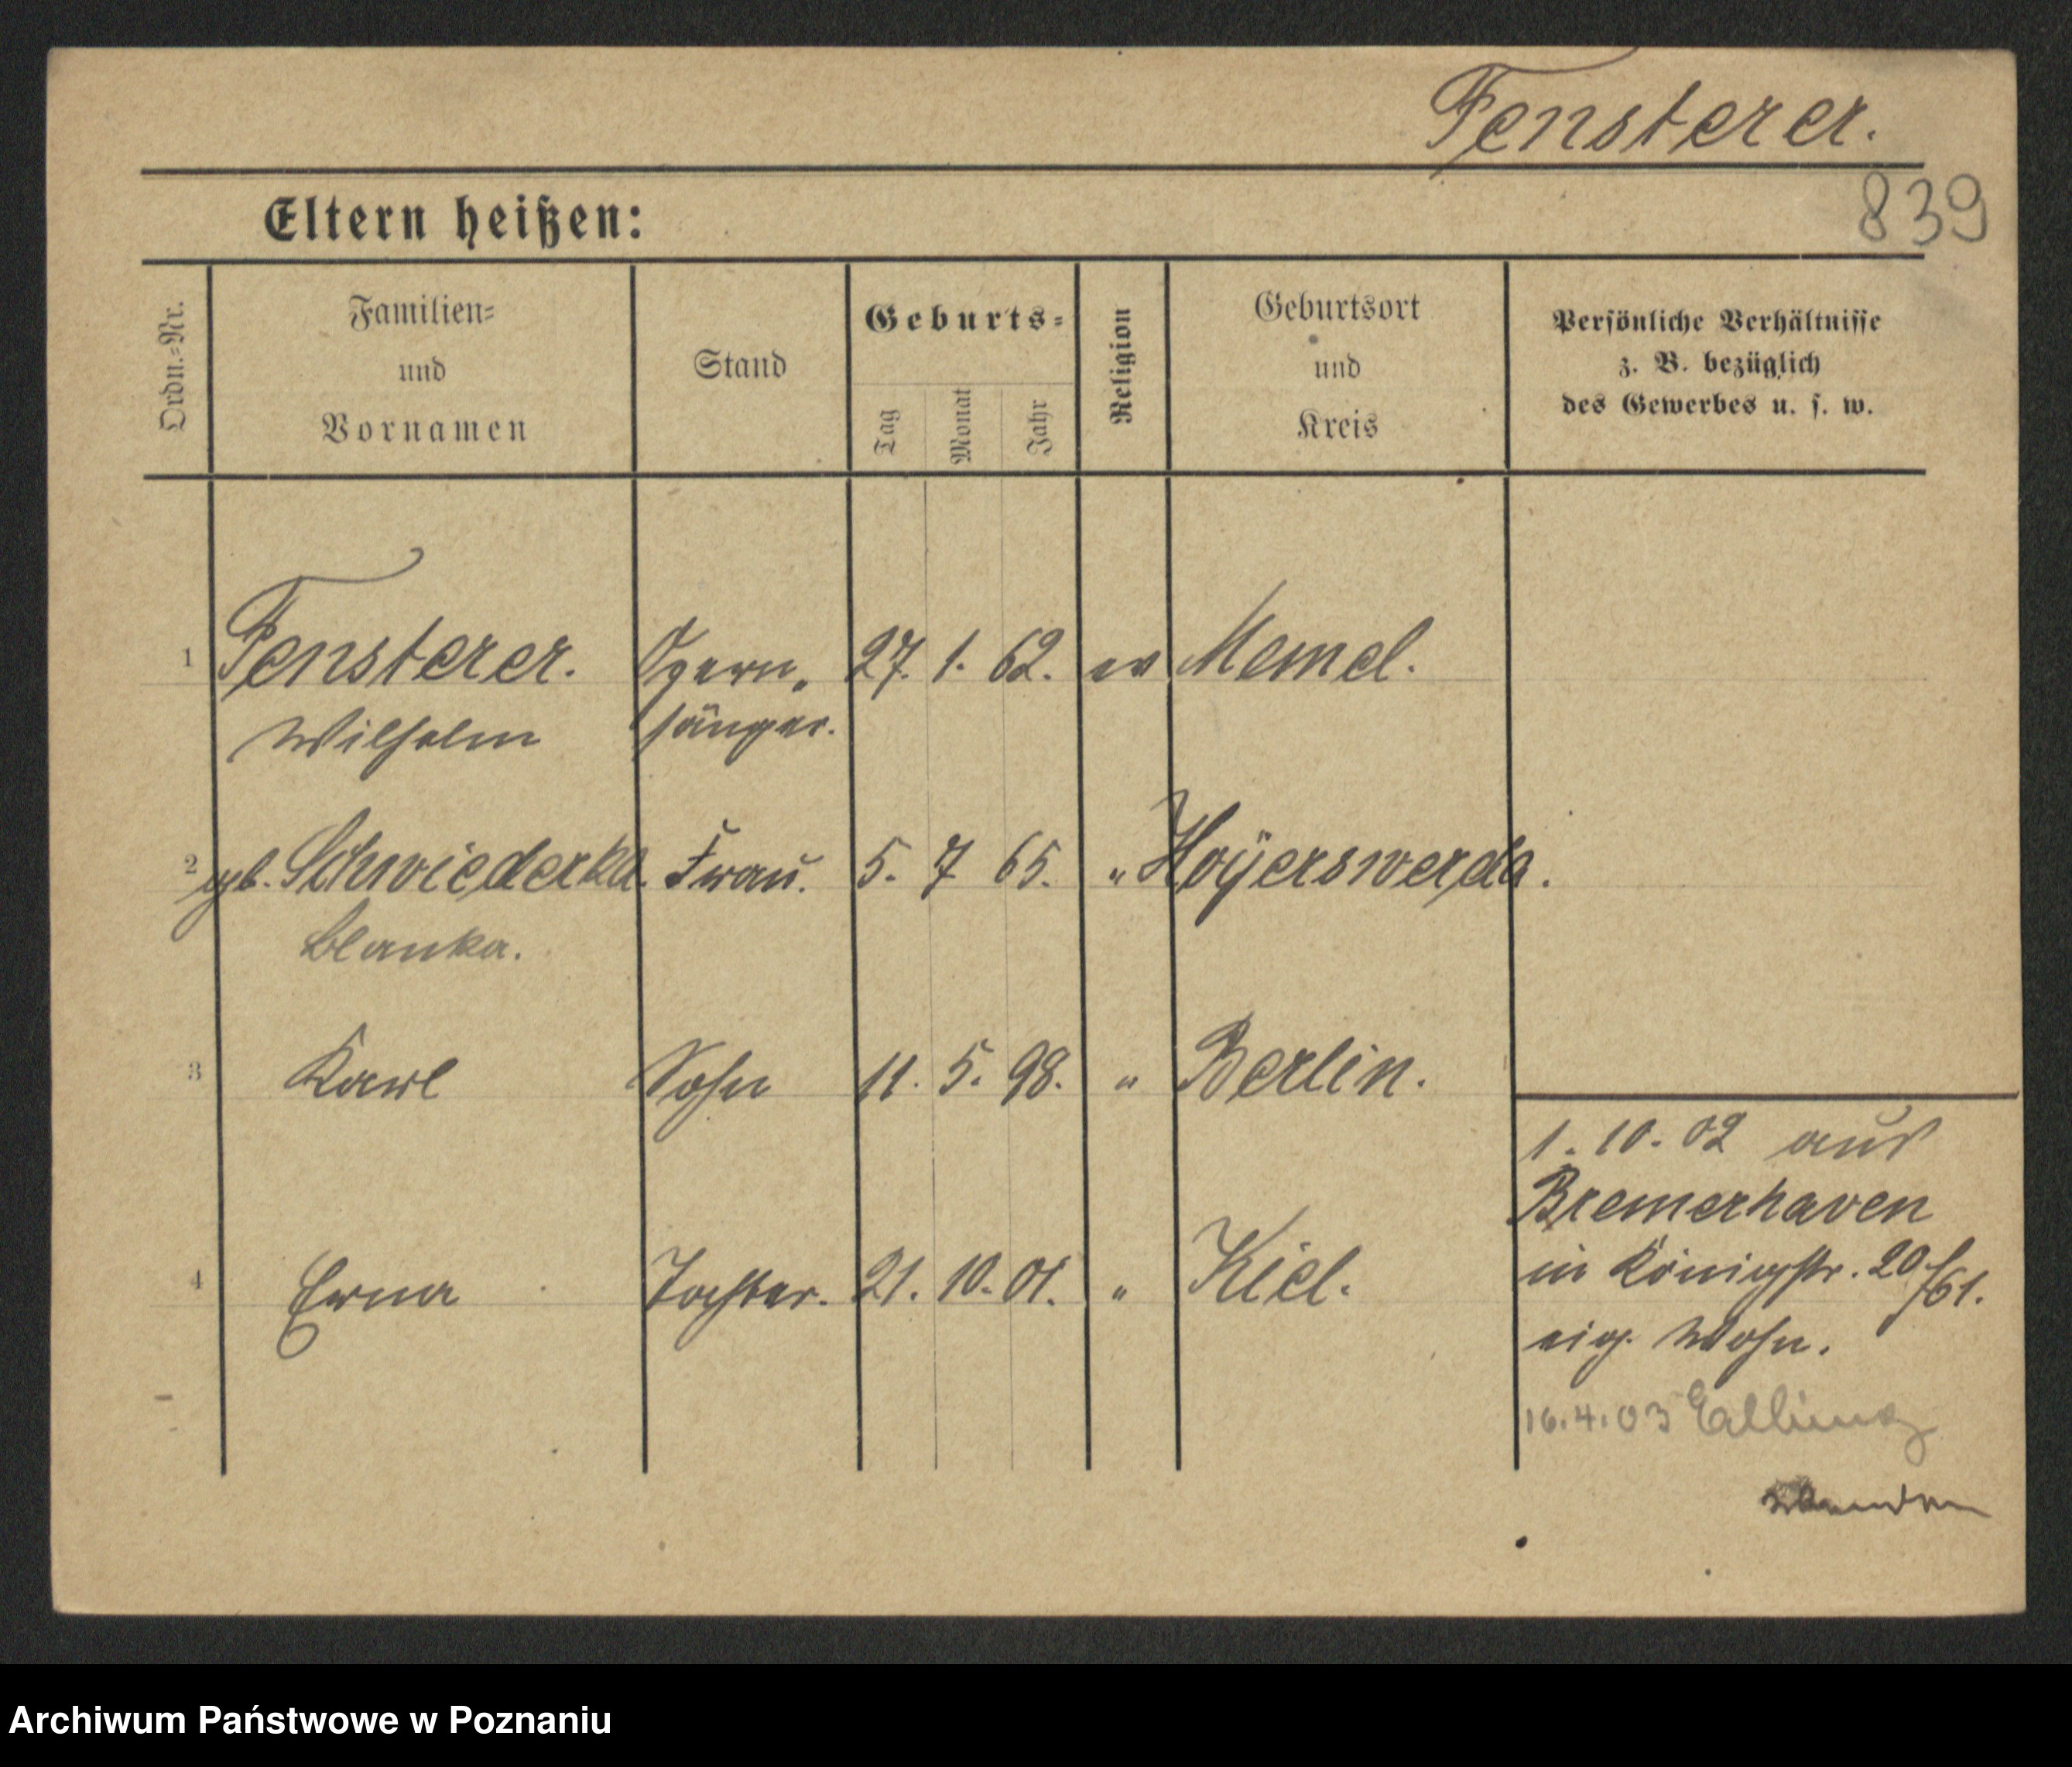 Fensterer.
839
Eltern heißen:
Ordn.=Nr.
Familien=
und
Vornamen
Stand
Geburts=
Tag
Monat
Jahr
Religion
Geburtsort
und
Kreis
Persönliche Verhältnisse
z. B. bezüglich
des Gewerbes u. s. w.
1 Fensterer. Opern= 27. 1. 62. ev Memel.
Wilhelm sänger.
2 geb. Schwiederka. Frau. 5. 7 65. " Hoyerswerda.
Blanka.
3 Karl Sohn 11. 5. 98. " Berlin.
4 Erna Tochter. 21. 10. 01. " Kiel.
1. 10. 02 aus
Bremerhaven
in Königstr. 20/61.
eig. Wohn.
16.4.03
Archiwum Państwowe w Poznaniu